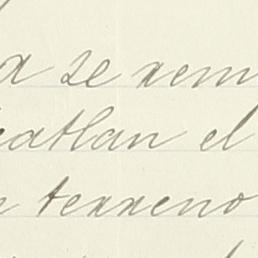 se rem
atlan el
terreno